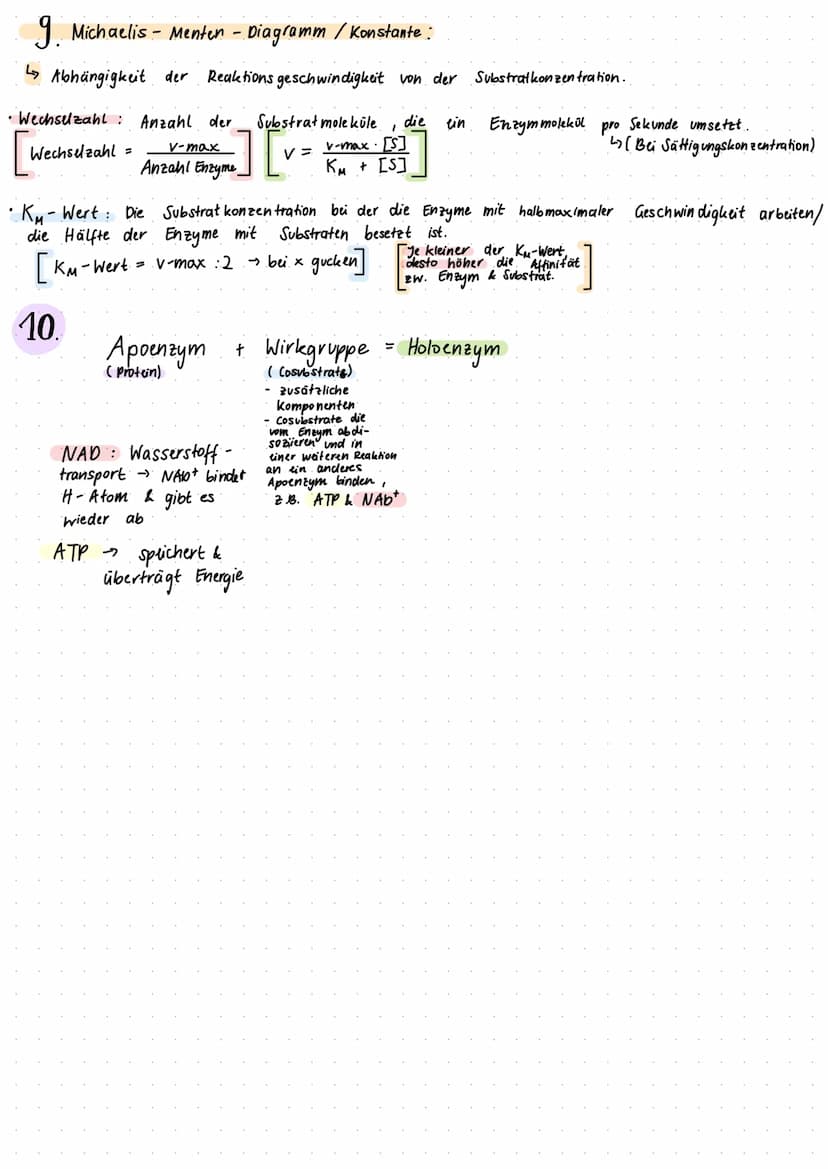 9. Michaelis - Menten - Diagramm / Konstante :
↳ Abhängigkeit der Reaktionsgeschwindigkeit von der Substratkonzentration.
• Wechselzahl : Anzahl der Substratmoleküle , die ein Enzymmolekül pro Sekunde umsetzt.
↳ ( Bei Sättigungskonzentration)
[ Wechselzahl = v-max / Anzahl Enzyme ] [ v = v-max · [S] / K_M + [S] ]
• K_M - Wert : Die Substratkonzentration bei der die Enzyme mit halbmaximaler Geschwindigkeit arbeiten/
die Hälfte der Enzyme mit Substraten besetzt ist.
[ K_M - Wert = v-max : 2 → bei x gucken ]
[ Je kleiner der K_M-Wert,
desto höher die Affinität
zw. Enzym & Substrat. ]
10.
Apoenzym + Wirkgruppe = Holoenzym
( Protein) ( Cosubstrate)
- zusätzliche
Komponenten
- Cosubstrate die
vom Enzym abdi-
soziieren und in
einer weiteren Reaktion
an ein anderes
Apoenzym binden ,
z.B. ATP & NAD⁺
NAD : Wasserstoff -
transport → NAD⁺ bindet
H - Atom & gibt es
wieder ab
ATP → speichert &
überträgt Energie